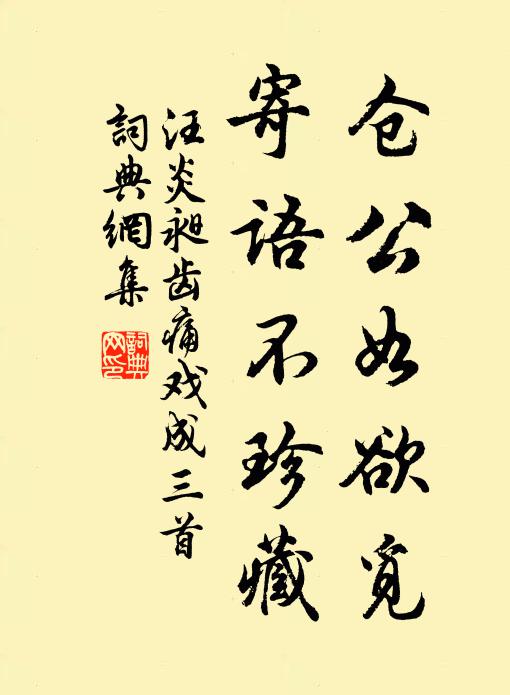 仓公如欲觅
寄语不珍藏
汪炎昶齿痛戏成三首
詞典網集
詞典網印